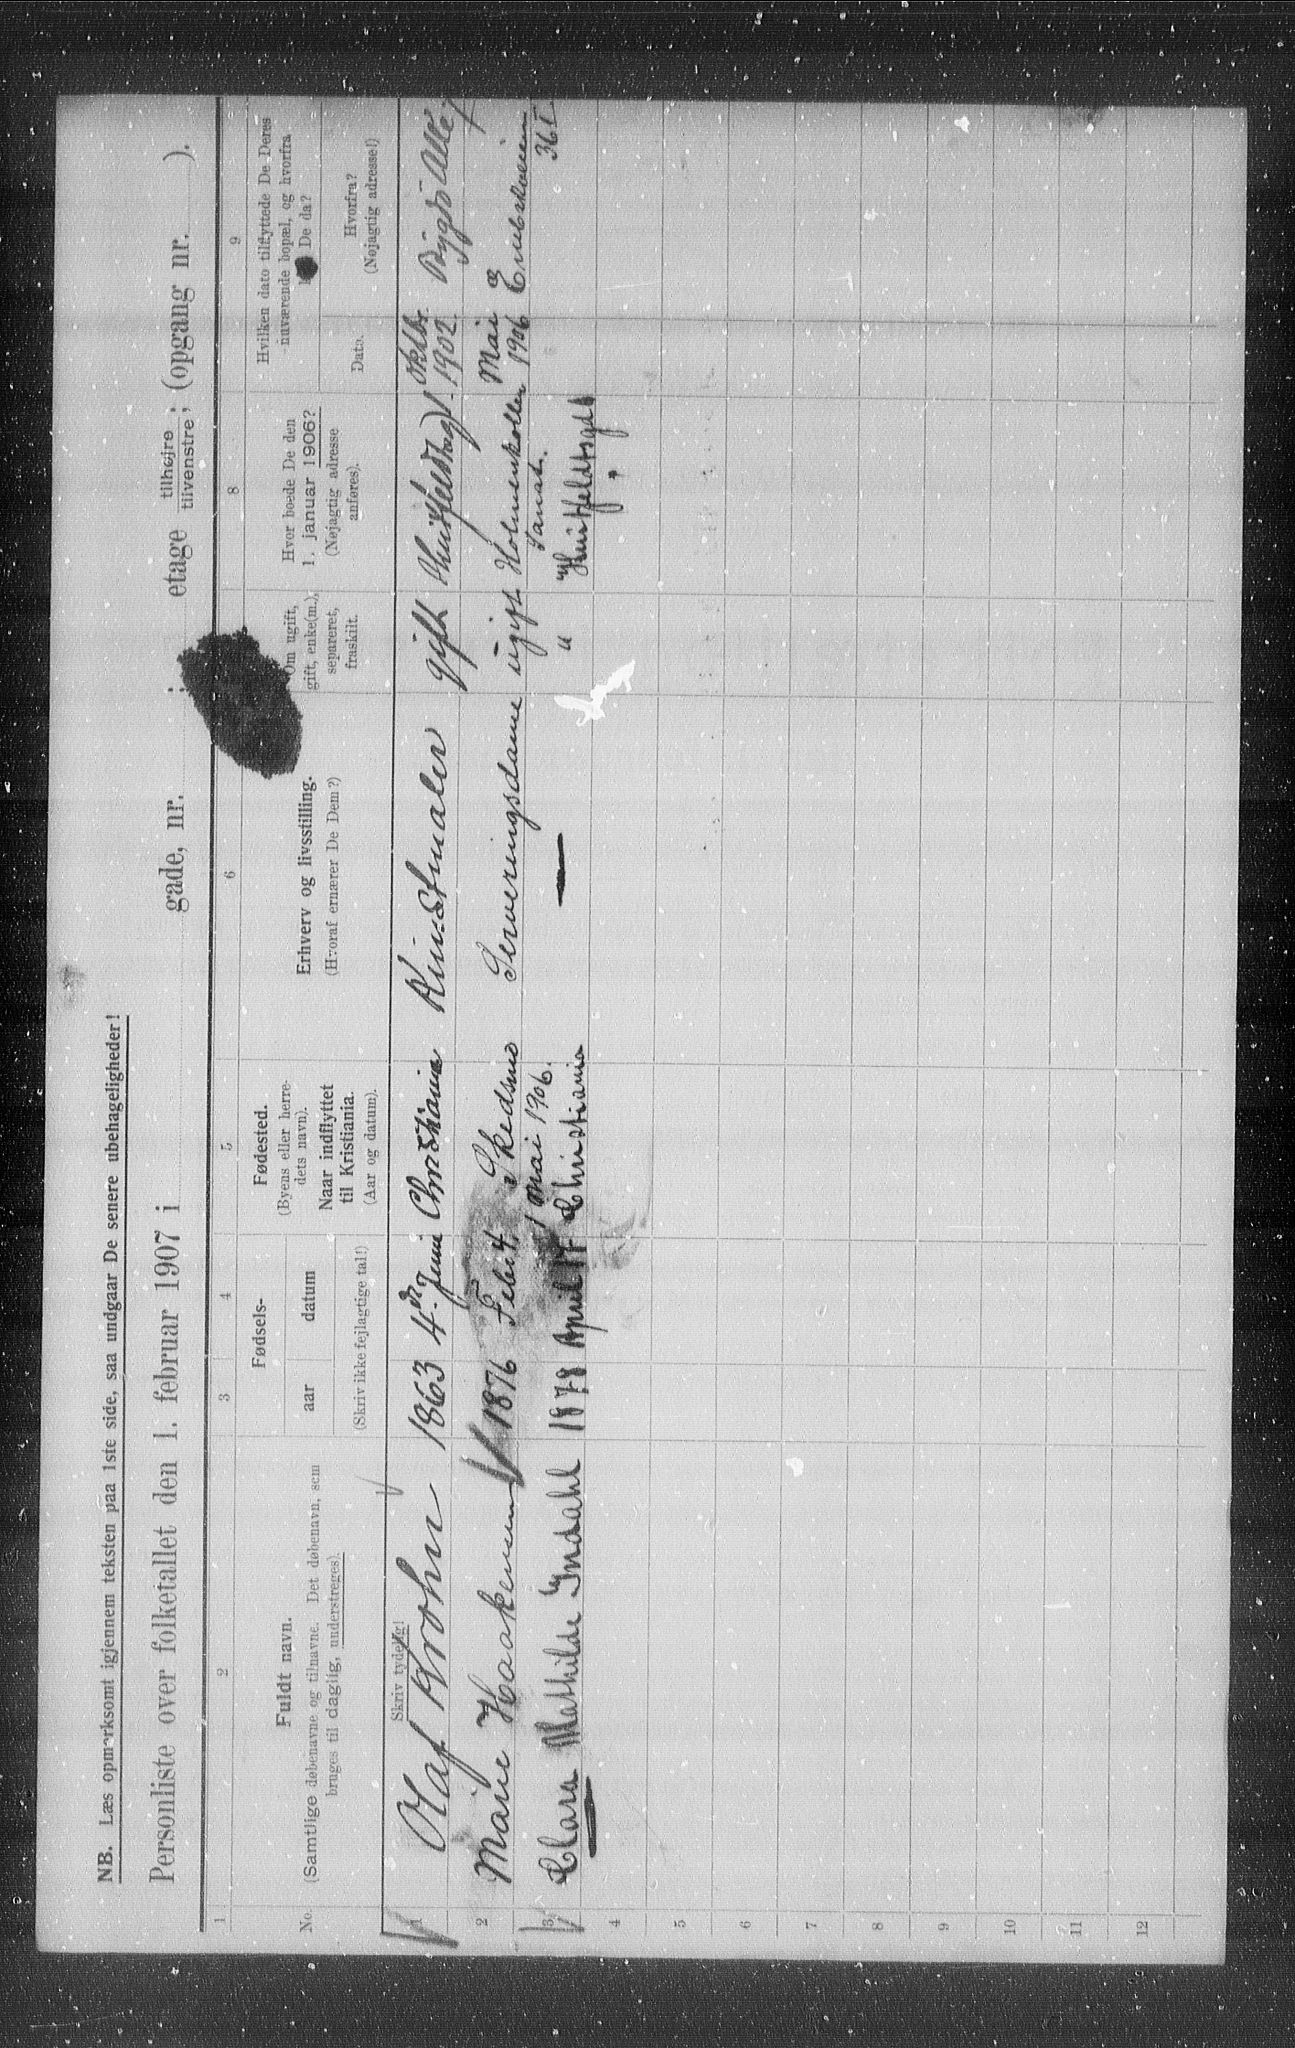 NB. Læs opmærksomt igjennem teksten paa 1ste side, saa undgaar De senere ubehageligheder!
Personliste over folketallet den 1. februar 1907 i gade, nr. i etage tilhøjre tilvenstre; (opgang nr. ).
1 2 3 4 5 6 8 9
No. Fuldt navn. (Samtlige døbenavne og tilnavne. Det døbenavn, som bruges til daglig, understreges).
Fødsels- aar datum (Skriv ikke fejlagtige tal!)
Fødested. (Byens eller herredets navn). Naar indflyttet til Kristiania. (Aar og datum).
Erhverv og livsstilling. (Hvoraf ernærer De Dem?)
Om ugift, gift, enke(m.), separeret, fraskilt.
Hvor boede De den 1. januar 1906? (Nøjagtig adresse anføres).
Hvilken dato tilflyttede De Deres nuværende bopæl, og hvorfra De da?
Dato. Hvorfra? (Nøjagtig adresse!)
Skriv tydelig!
1 Olaf Krohn 1863 4de Juni Christiania Kunstmaler gift Oktbr. 1902. Bygdö Allé
2 Marie Haakensen 1876 Febr 4. Skedsmo 1 Mai 1906. Serveringsdame ugift Holmenkollen Sanat. Mai 1906
36 I
3 Clara Mathilde Indahl 1878 April 17 Christiania — " Huitfeldtsgd
4
5
6
7
8
9
10
11
12